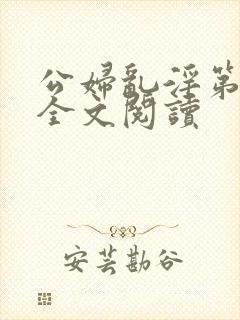 公婦亂淫第
全文閱讀
安芸勘谷